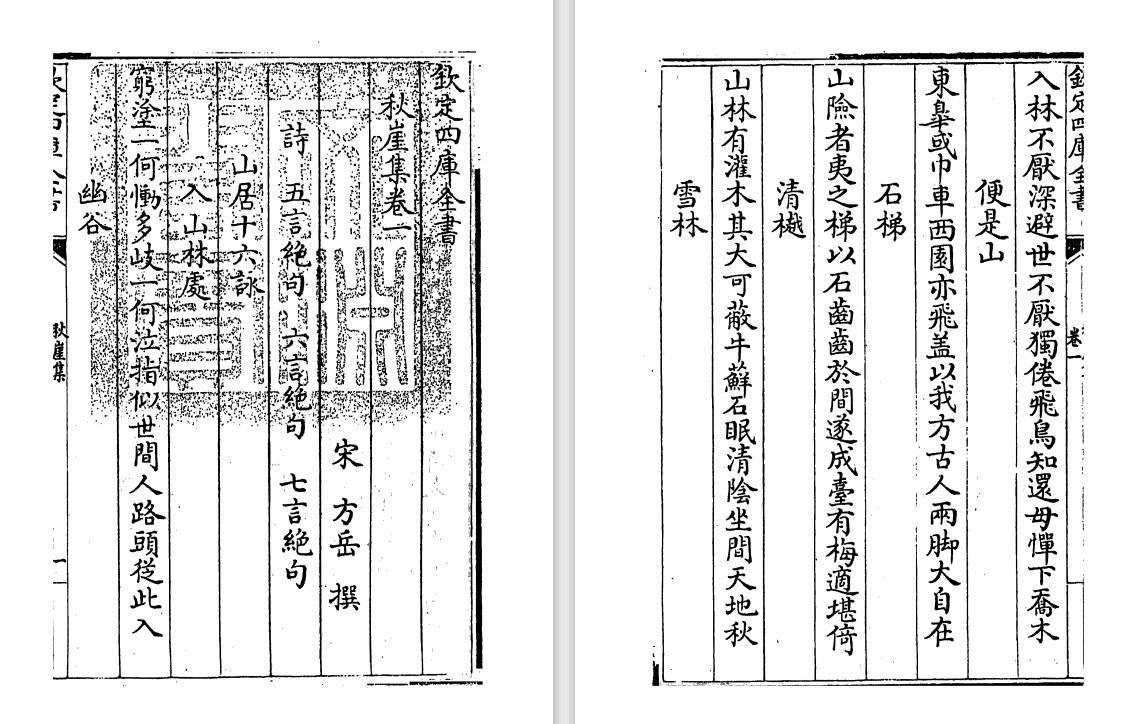 欽定四庫全書
秋崖集卷一
宋 方岳 撰
詩 五言絶句 六言絶句 七言絶句
山居十六詠
入山林處
窮塗一何慟多岐一何泣指似世間人路頭從此入
幽谷
秋崖集
一
欽定四庫全書
卷一
入林不厭深避世不厭獨倦飛鳥知還毋憚下喬木
便是山
東臯或巾車西園亦飛盖以我方古人兩脚大自在
石梯
山險者夷之梯以石齒齒於間遂成臺有梅適堪倚
清樾
山林有灌木其大可蔽牛蘚石眠清陰坐間天地秋
雪林